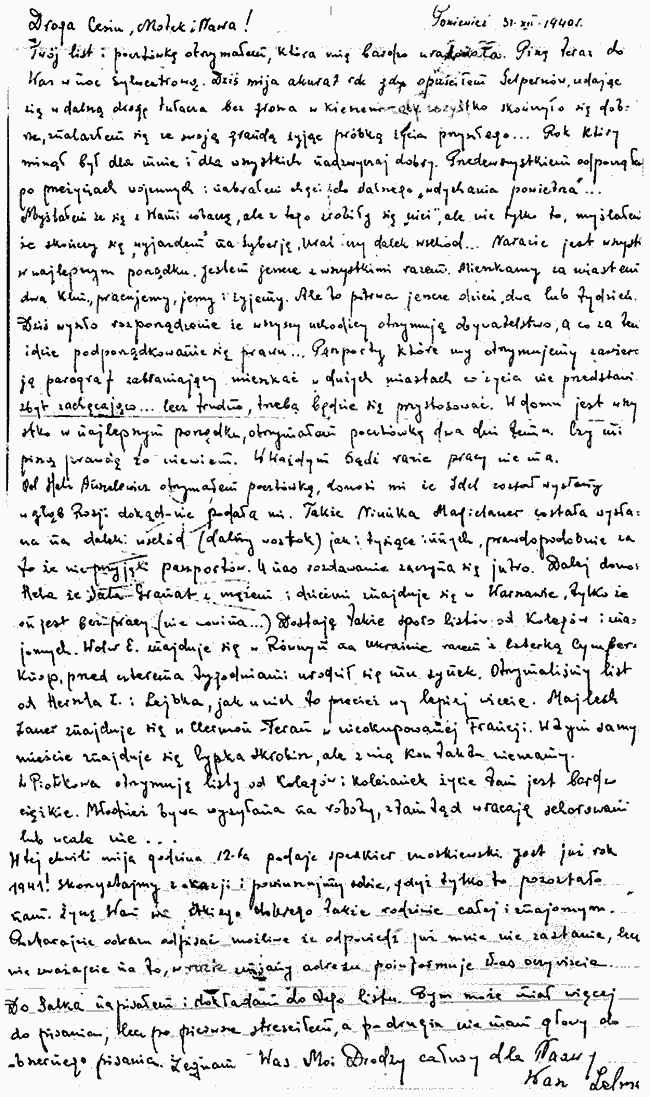 Droga Cesiu, Motek i Nawa!
Poniewież 31-XII-1940r.
Twój list i pocztówkę otrzymałem, która mię bardzo uradowała. Piszę teraz do
Was w noc Sylwestrową. Dziś mija akurat rok gdy opuściłem Selpernów, udając
się w dalszą drogę tułacza bez grosza w kieszeni wszystko skończyło się dob-
rze, znalazłem się ze swoją grandą żyjąc próbką życia przyszłego... Rok który
minął był dla mnie i dla wszystkich nadzwyczaj dobry. Przedewszystkiem odpocząłem
po przeżyciach wojennych i nabrałem chęci do dalszego "wdychania powietrza"...
Myślałem że się z Wami zobaczę, ale z tego zrobiły się nici, ale nie tylko to, myślałem
że skończy się "wyjazdem" na Syberję, Ural czy dalek wschód... Narazie jest wszystko
w najlepszym porządku. Jestem jeszcze z wszystkimi razem. Mieszkamy za miastem
dwa klm., pracujemy, jemy i żyjemy. Ale to potrwa jeszcze dzień, dwa lub tydzień.
Dziś wyszło rozporządzenie że wszyscy uchodźcy otrzymują obywatelstwo, a co za tem
idzie podporządkowanie się prawu... Paszporty które my otrzymujemy zawiera-
ją paragraf zabraniający mieszkać w dużych miastach co życia nie przedstawi
zbyt zachęcająco... lecz trudno, trzeba będzie się przystosować. W domu jest wszy
stko w najlepszym porządku, otrzymałem pocztówkę dwa dni temu. Czy mi
piszą prawdę to niewiem. W każdym bądź razie pracy nie ma.
Od Heli otrzymałem pocztówkę, donosi mi że Idel został wysłany
wgłąb Rosji dokąd nie podała mi. Także Niuńka Magielaner została wysła-
na na daleki wschód (dalny wostok) jak i tysiące innych, prawdopodobnie za
to że nie przyjęli paszportów. U nas rozdawanie zaczyna się jutro. Dalej donosi
Hela że Sala Granat z mężem i dziećmi znajduje się w Warszawie, tylko że
on jest bez pracy (nie nowina...) Dostają także sporo listów od Kolegów i zna-
jomych. Wolw E. znajduje się w Równym na Ukrainie razem z Esterką Cymber-
knop, przed czterema tygodniami urodził się mu synek. Otrzymaliśmy list
od Hersza E. i Lejbka, jak u nich to przecież wy lepiej wiecie. Majlech
Lauer znajduje się w Clermon-Feran w nieokupowanej Francji. W tym samym
mieście znajduje się Rypka Skrobin, ale z nią kontaktu niemamy.
Z Piotrkowa otrzymują listy od Kolegów i koleżanek życie tam jest bardzo
ciężkie. Młodzież bywa wysyłana na roboty, z tamtąd wracają schorowani
lub wcale nie...
W tej chwili mija godzina 12-ta podaje speakier moskiewski. Jest już rok
1941! Skorzystajmy z okazji i powinszujmy sobie, gdyż tylko to pozostało
nam. Życzę Wam wszystkiego dobrego także rodzinie całej i znajomym.
Postarajcie odrazu odpisać możliwe że odpowiedź już mnie nie zastanie, lecz
nie zważajcie na to, w razie zmiany adresu poinformuje Was oczywiście.
Do Salka napisałem i dokładam do tego listu. Bym może miał więcej
do pisania, lecz po pierwsze streściłem, a po drugie nie mam głowy do
obszernego pisania. Żegnam Was Moi Drodzy całusy dla Nawy
Wasz